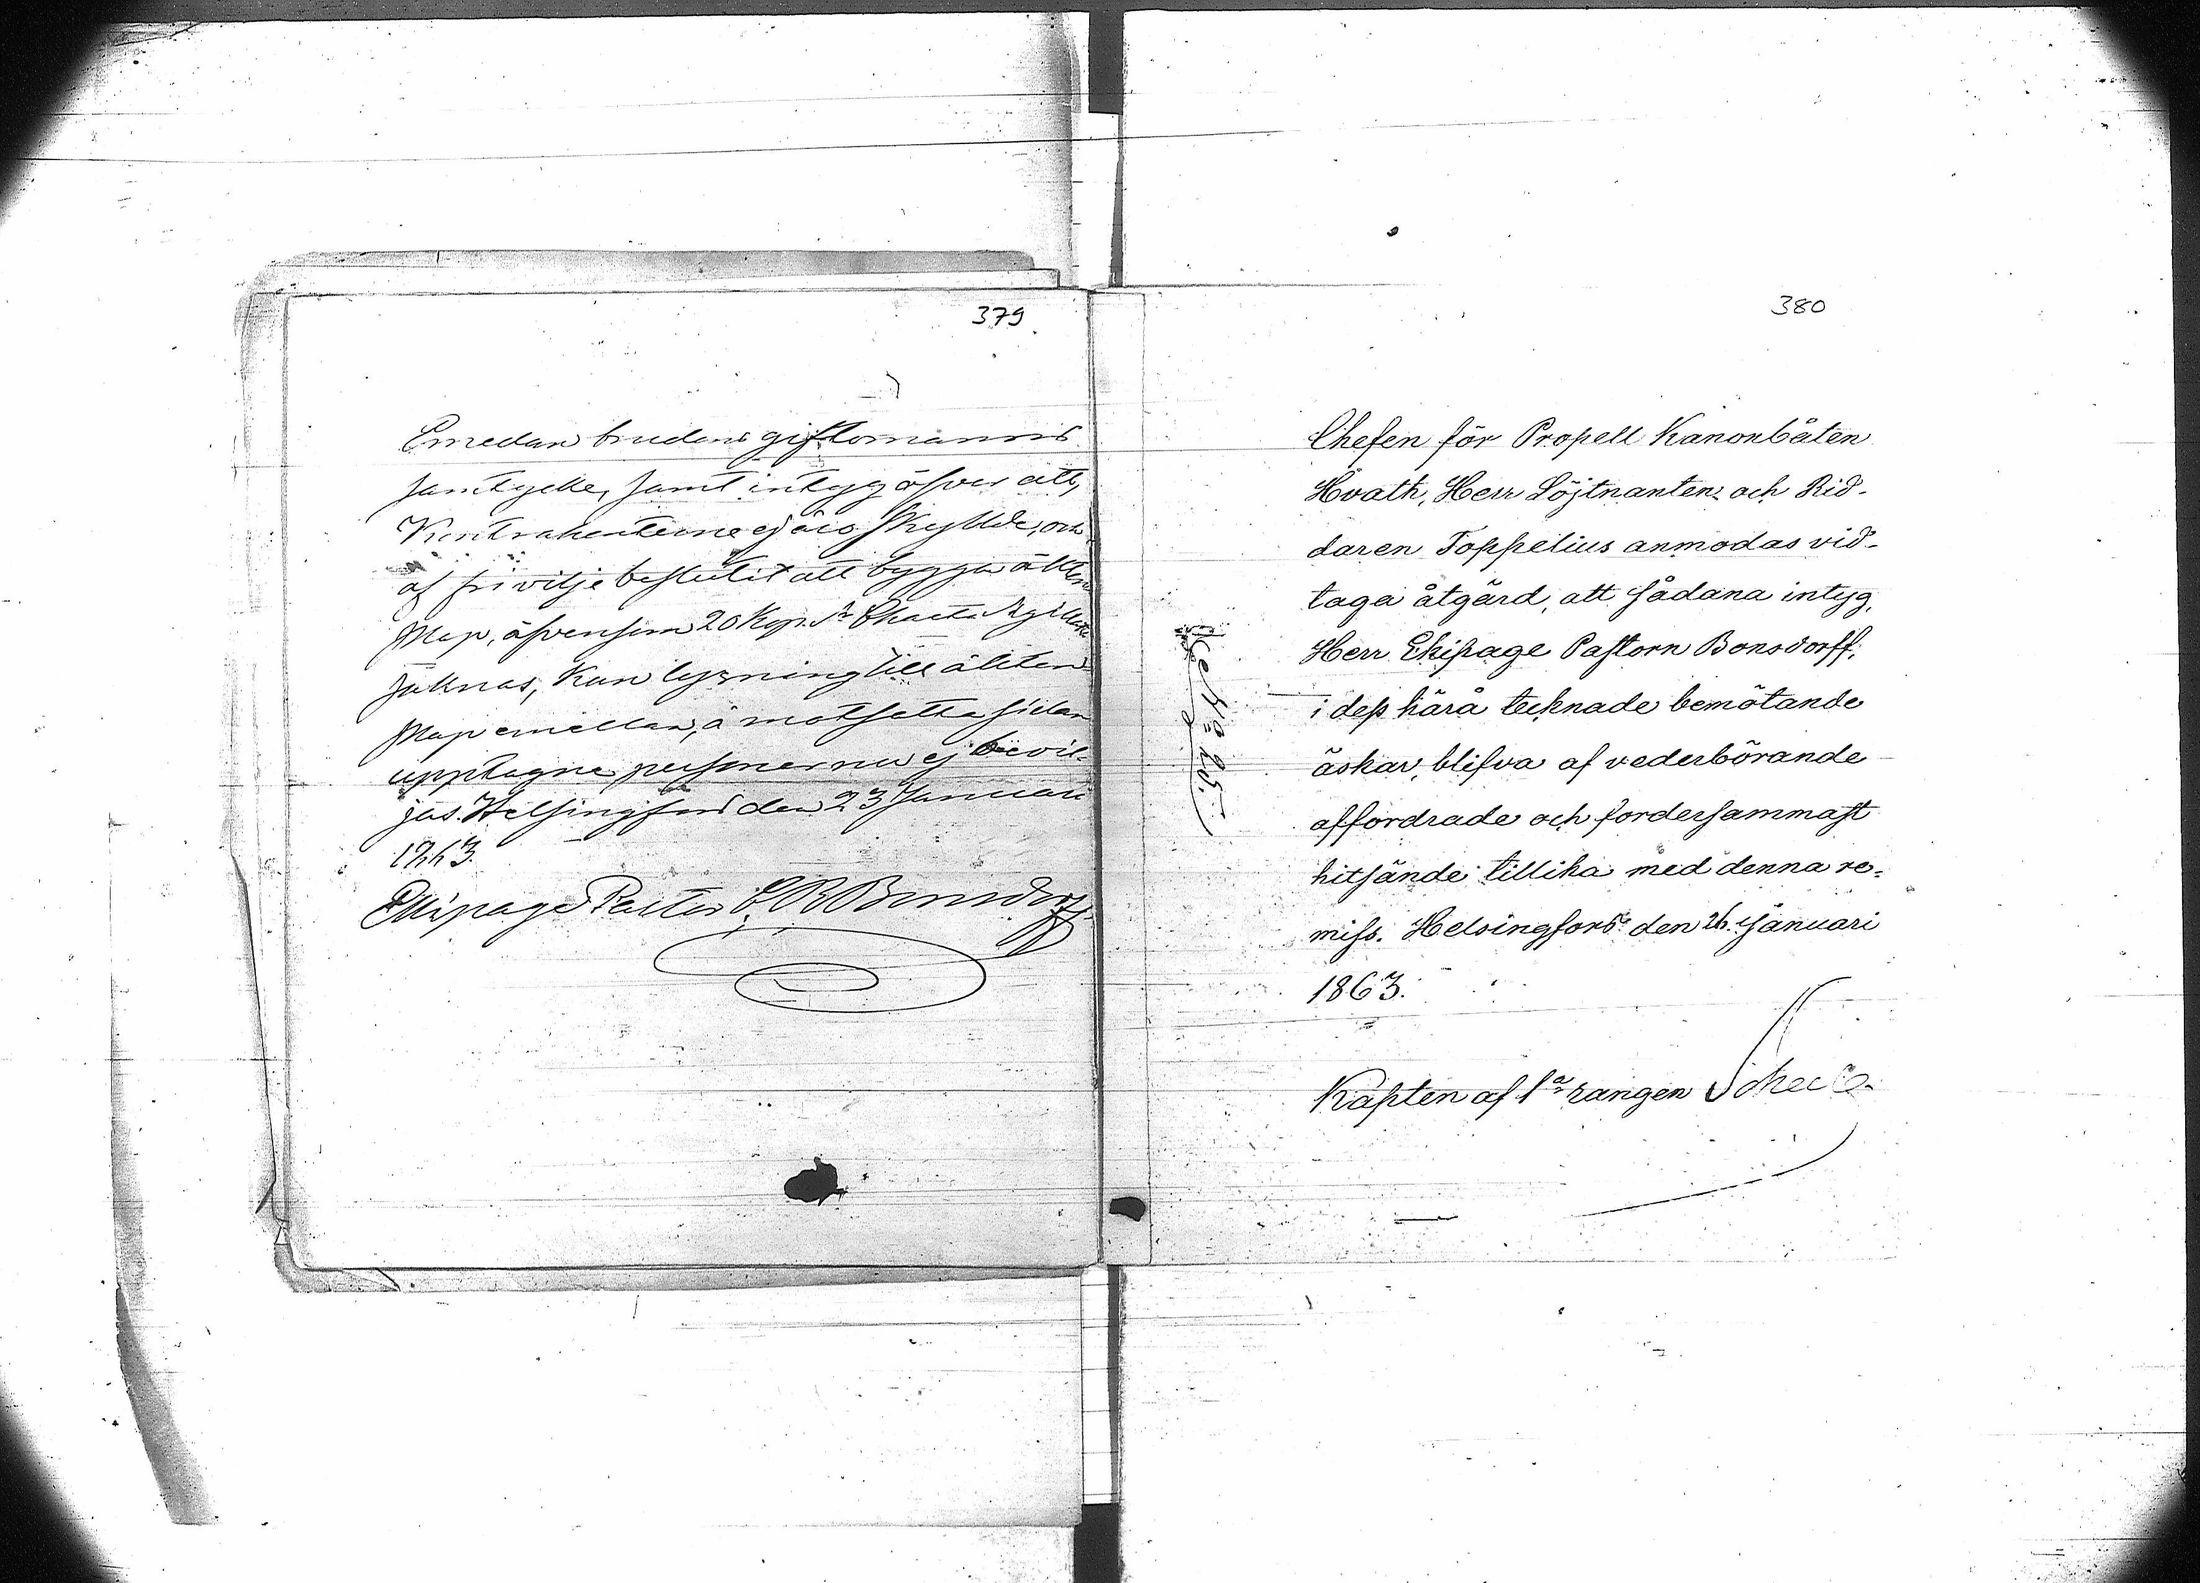 379
Emedan brudens giftomannens
samtycke, samt intyg öfver att,
Kontrahenterne ej äro skyllde, och
af fri vilje beslutit att bygga äkten
skap, äfvensom 20 Kop. Sr Charta Sigillata
saknas, kan lysning till äkten
skap emellan, å motsatta sidan
upptagne personerna ej bevil-
jas. Helsingfors den 23 Januari
1863.
Ekipage Pastor C R Bonsdorff
380
Chefen för Propell Kanonbåten
Hvath, Herr Löjtnanten och Rid-
daren Toppelius anmodas vid-
taga åtgärd, att sådana intyg,
Herr Ekipage Pastorn Bonsdorff,
i dess härå tecknade bemötande
äskar, blifva af vederbörande
affordrade och fordersammast
hitsände tillika med denna re-
miss. Helsingfors den 26 Januari
1863.
Kapten af 1a rangen